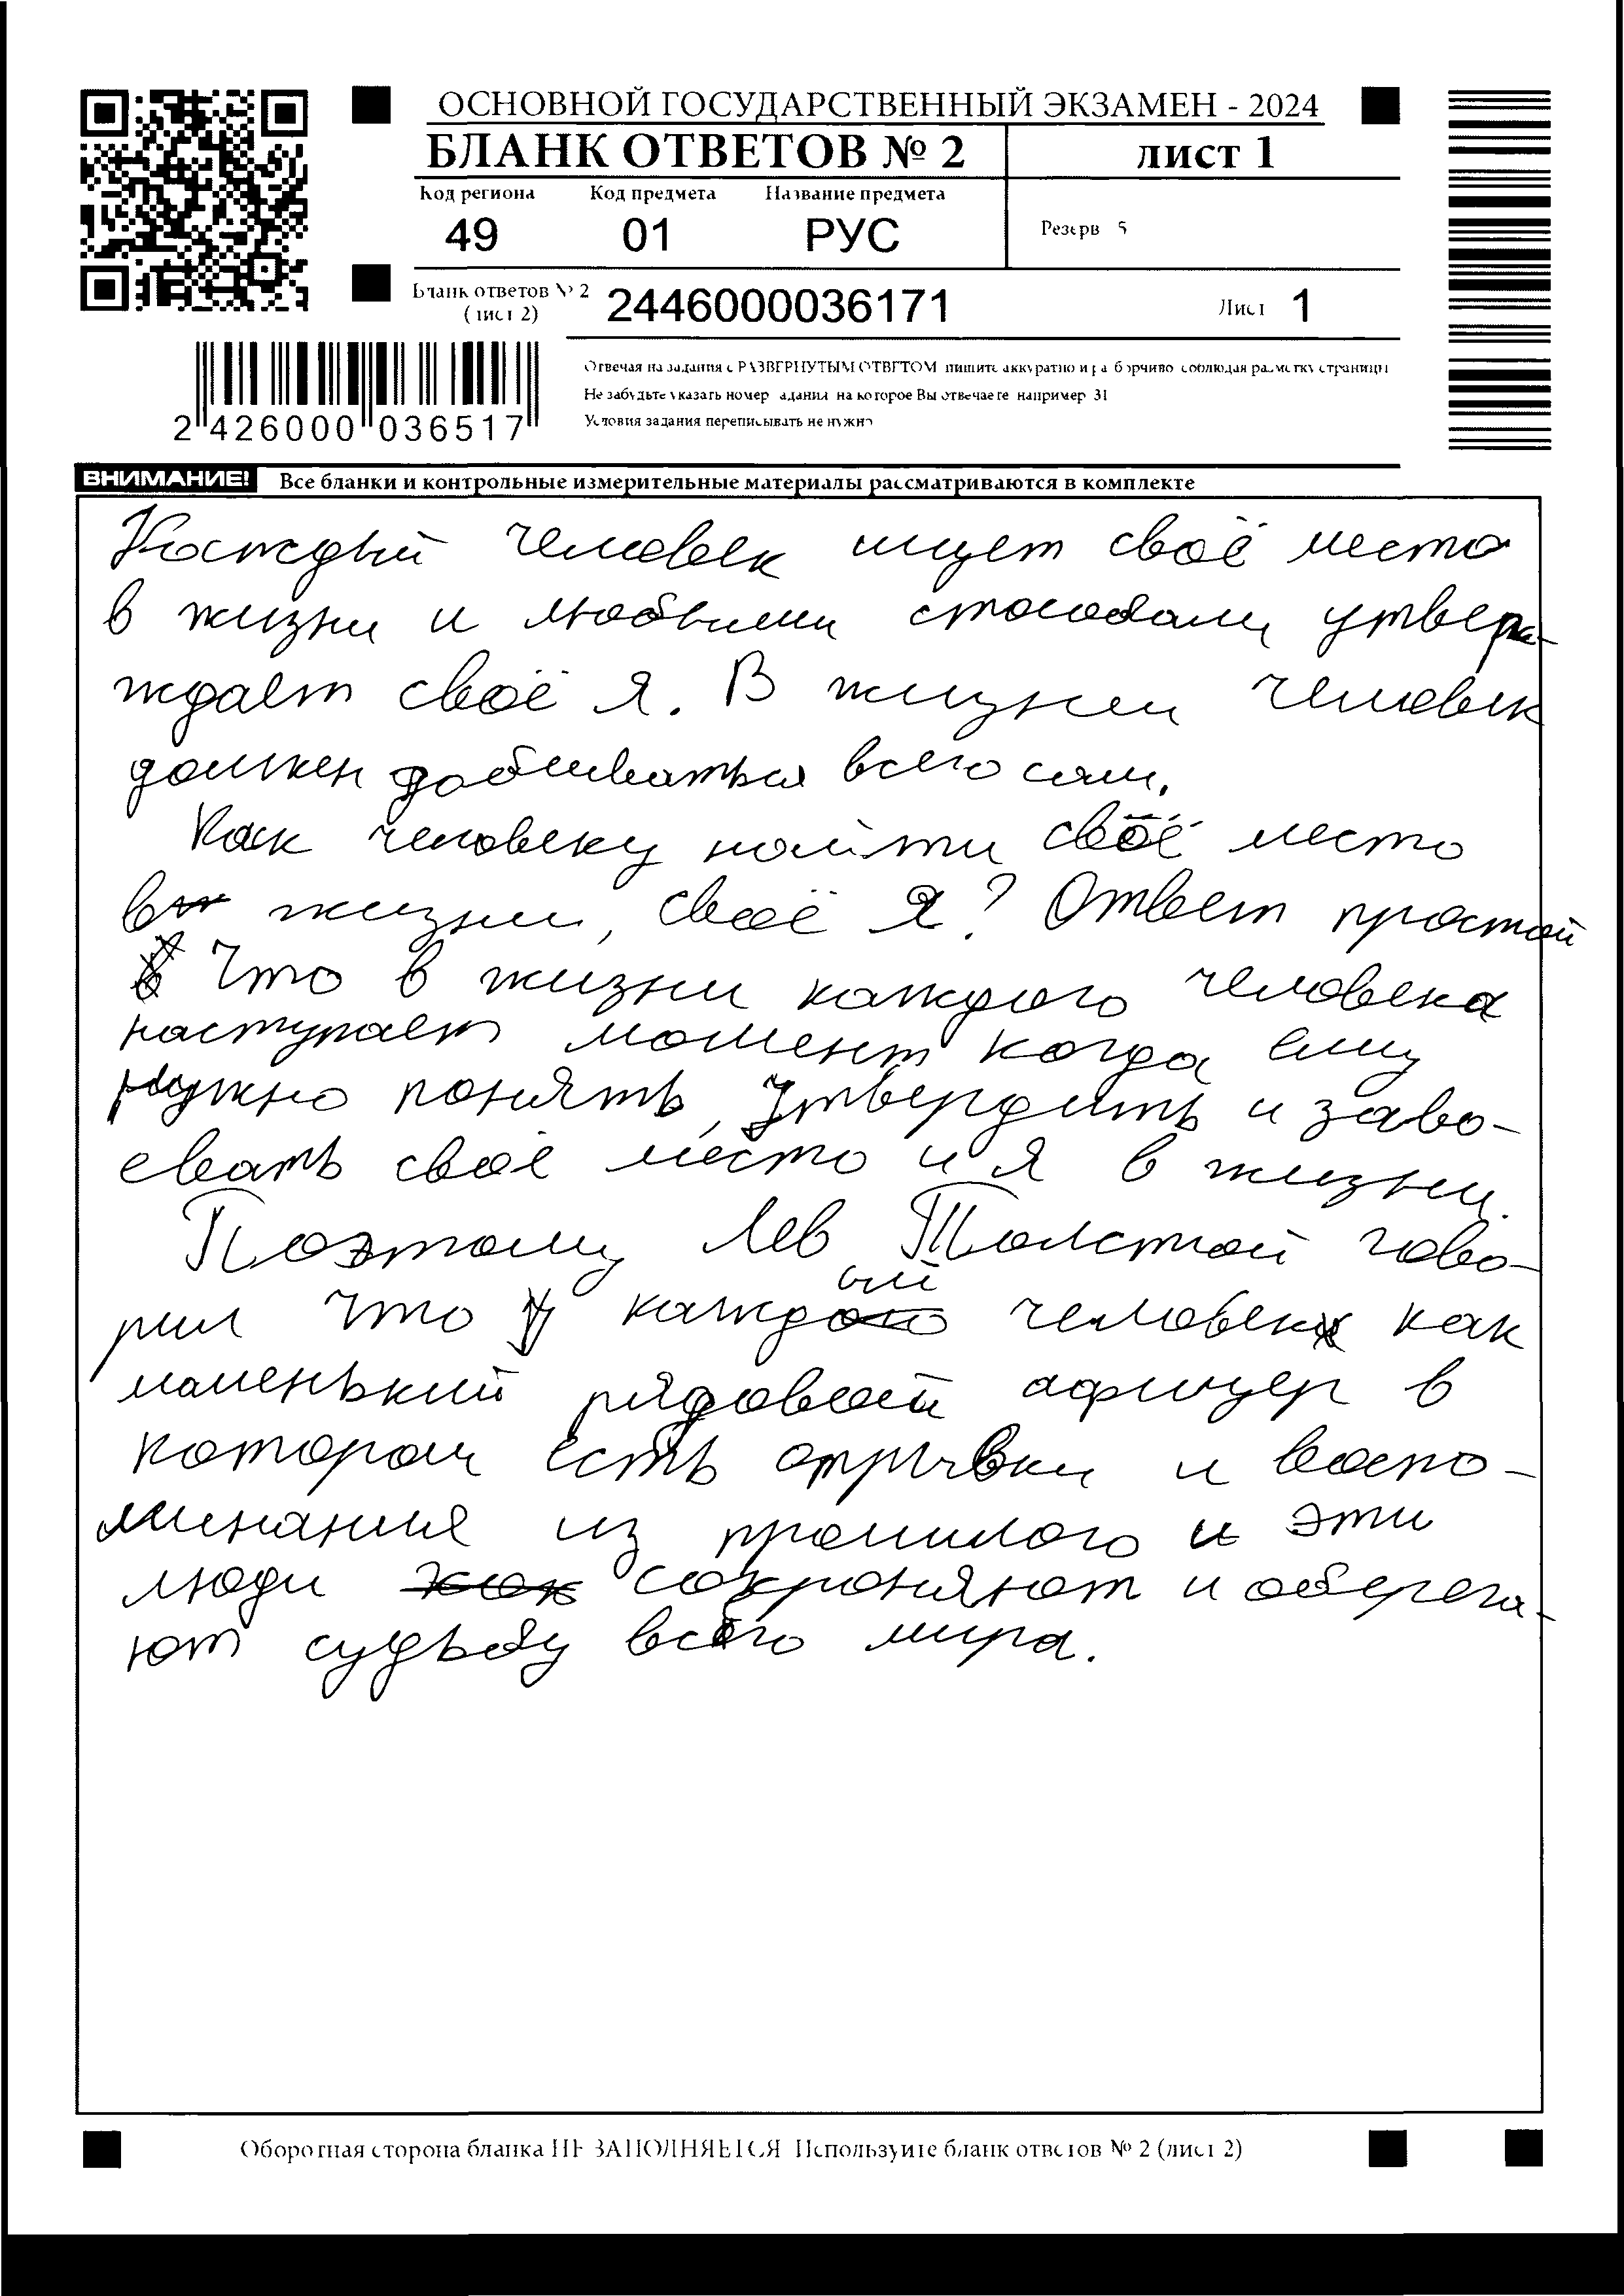 ОСНОВНОЙ ГОСУДАРСТВЕННЫЙ ЭКЗАМЕН - 2024
БЛАНК ОТВЕТОВ № 2 лист 1
Код региона Код предмета Название предмета
49 01 РУС Резерв 5
Бланк ответов № 2 (лист 2) 2446000036171 Лист 1
Отвечая на задания с РАЗВЕРНУТЫМ ОТВЕТОМ пишите аккуратно и разборчиво соблюдая разметку страницы
Не забудьте указать номер задания на которое Вы отвечаете например 31
Условия задания переписывать не нужно
2 426000 036517
ВНИМАНИЕ! Все бланки и контрольные измерительные материалы рассматриваются в комплекте
Каждый человек ищет своё место
в жизни и любыми способами утвер-
ждает своё я. В жизни человек
должен добиваться всего сам.
Как человеку найти своё место
в жизни, своё Я? Ответ простой
Что в жизни каждого человека
наступает момент когда ему
нужно понять, утвердить и заво-
евать своё место и я в жизни.
Поэтому Лев Толстой гово-
рил что каждый человек как
маленький рядовой афицер в
котором есть отрывки и воспо-
минания из прошлого и эти
люди сохроняют и оберега-
ют судьбу всего мира.
Оборотная сторона бланка НЕ ЗАПОЛНЯЕТСЯ Используйте бланк ответов № 2 (лист 2)